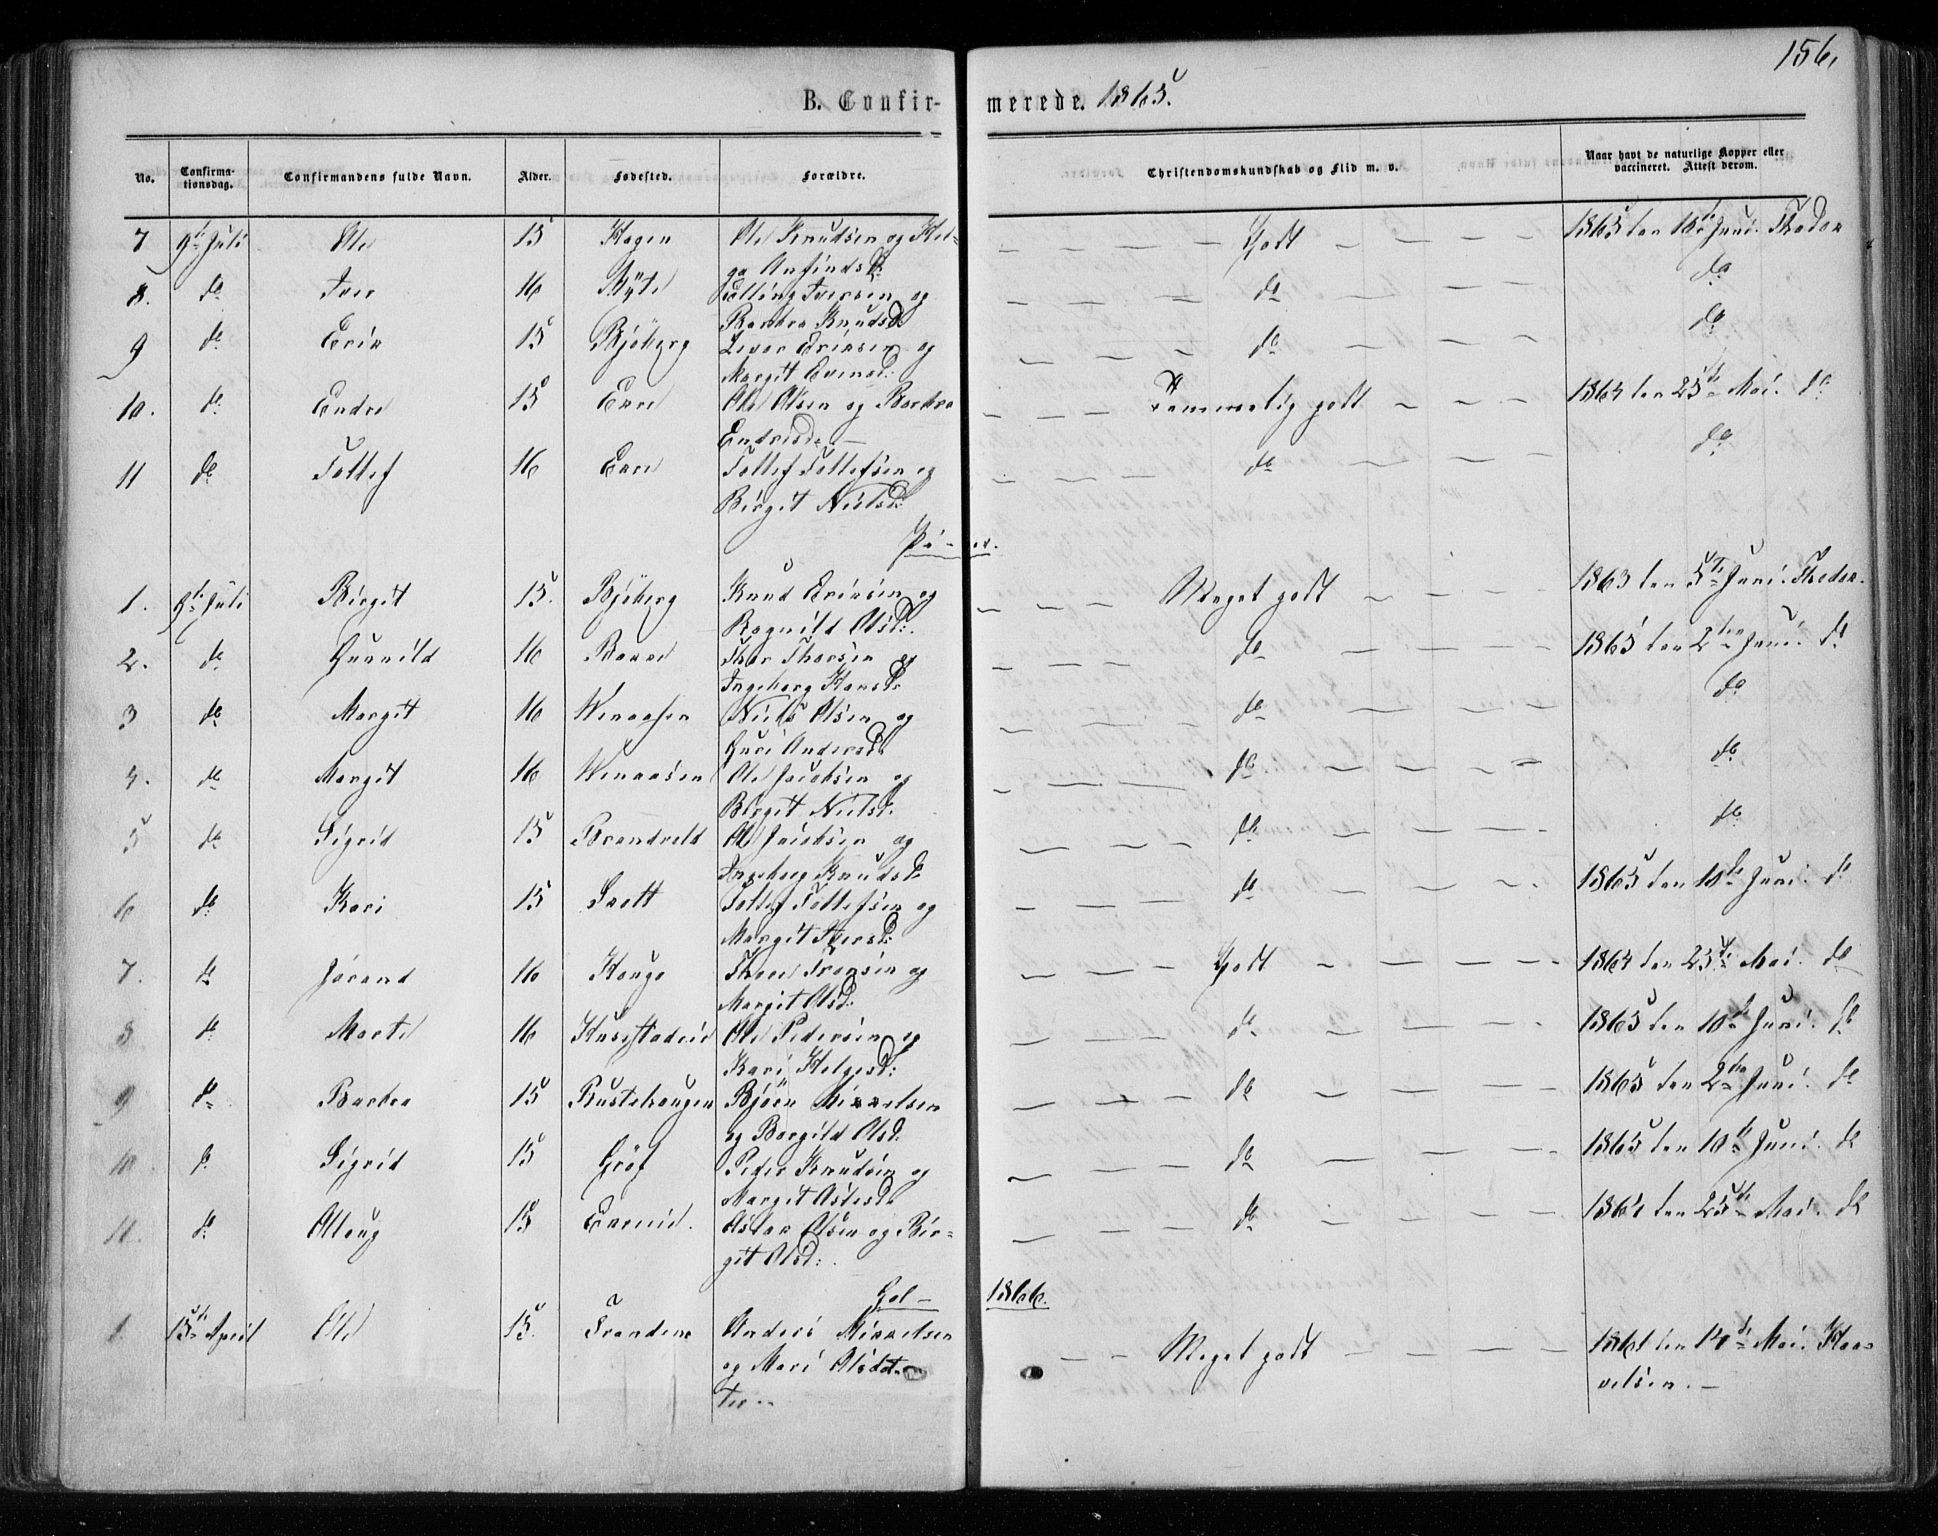 156.
B. Confir- merede. 1865.
No. Confirma-tionsdag. Confirmandens fulde Navn. Alder. Fødested. Forældre. Christendomskundskab og Flid m. v. Naar havt de naturlige Kopper eller vaccineret. Attest derom.
7 9de Juli Ole 15 Hagen Ole Knudsen og Hel- Godt 1865 den 10de Juni.
ga Anfindsd:
8. do Iver 16 Iversen og do do
Barbra Knudsd:
9 do Erik 15 Bjöberg Levor Eriksen og do do
Margit Evensd:
10. do Endre 15 Ole Olsen og Barbra Temmelig godt 1864 den 25de Mai. do
Endresd. —
11 do Tollef 16 Tollef Tollefsen og do do
Birgit Nielsd:
Pi-er.
1. 9de Juli Birgit 15. Bjöberg Knud Eriksen og Meget godt 1863 den 5te Juni.
Ragnild Olsd:
2. do Gunnild 16 Thor Thorsen og do 1865 den 2den Juni. do
Ingeborg Hansd:
3 do Margit 16 Niels Olsen og do do
Guri Andersd:
4. do Margit 16 Wenaasen Ole Jacobsen og do do
Birgit Nielsd:
5 do Sigrid 15 Brandvold Ole Jacobsen og do do
Ingeborg Knudsd:
6 do Kari 15 Tollef Tollefsen og do 1865 den 10de Juni. do
Margit Iversd:
7. do Jorand 16 Hauge Godt 1864 den 25de Mai. do
Margit Olsd:
8 do Marte 16 Ole Pedersen og do 1865 den 10de Juni. do
Kari Helgesd:
9 do Barbra 15 Rustehaugen Bjørn Mikkelsen do 1865 den 2den Juni. do
og Borgild Olsd.
10. do Sigrid 15 Gröf Peder Knudsen og do 1865 den 10de Juni. do
Margit
11. do 15 Aslak Olsen og Bir- do 1864 den 25de Mai. do
git Olsd:
Gol - 1866.
1. 15de April Ole 15. Anders Mikkelsen Meget godt 1861 den 14de Mai.
og Mari Olsdat-
ter.